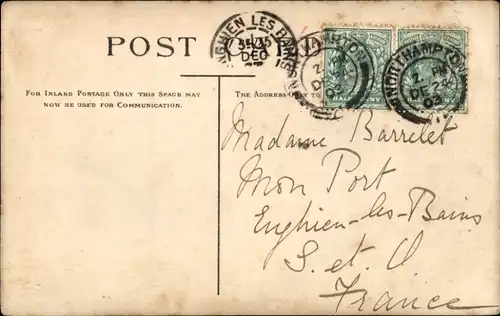 POST
ENGHIEN LES BAINS
DEC
NORTHAMPTON
DE 24
03
HALFPENNY
FOR INLAND POSTAGE ONLY THIS SPACE MAY
NOW BE USED FOR COMMUNICATION.
THE ADDRESS ONLY TO
Madame Barrelet
Mon Port
Enghien-les-Bains
S. et O.
France